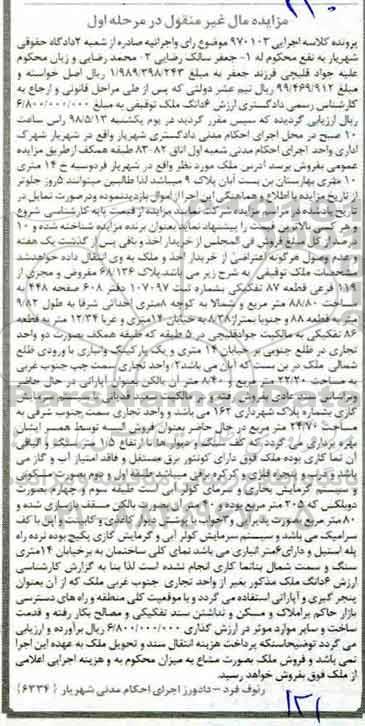 مزایده مال غیر منقول در مرحله اول
پرونده کلاسه اجرایی ۹۷۰۱۰۳ موضوع رای واجرائیه صادره از شعبه ۲دادگاه حقوقی
شهریار به نفع محکوم له ۱- جعفر سالک رضایی ۲- محمد رضایی و زیان محکوم
علیه جواد قلیچی فرزند جعفر به مبلغ ۱/۹۸۹/۳۹۸/۲۴۳ ریال اصل خواسته و
مبلغ ۹۹/۴۶۹/۹۱۲ ریال نیم عشر دولتی که پس از طی مراحل قانونی و ارجاع به
کارشناس رسمی دادگستری ارزش ۶دانگ ملک توقیفی به مبلغ ۶/۸۰۰/۰۰۰/۰۰۰
ریال ارزیابی گردیده که سپس مقرر گردید در یوم یکشنبه ۹۸/۵/۱۳ راس ساعت
۱۰ صبح در محل اجرای احکام مدنی دادگستری شهریار واقع در شهریار شهرک
اداری واحد اجرای احکام مدنی شعبه اول اتاق ۸۲-۸۳ طبقه همکف ازطریق مزایده
عمومی بفروش برسد آدرس ملک مورد نظر واقع در شهریار فردوسیه خ ۱۴ متری
۱۰ متری بهارستان بن بست آبان پلاک ۹ میباشد لذا طالبین میتوانند ۵روز جلوتر
از تاریخ مزایده با اطلاع و هماهنگی این اجرا از اموال بازدیدنموده ودرصورت تمایل در
تاریخ یادشده در جلسه مزایده شرکت نمایند مزایده از قیمت پایه کارشناسی شروع
و هر کس بالاترین قیمت را پیشنهاد نماید بعنوان برنده مزایده شناخته شده و ۱۰
درصد از کل مبلغ فروش فی المجلس از خریدار اخذ و باقی پس از گذشت یک هفته
و عدم وصول هرگونه اعتراضی از خریدار اخذ و ملک به وی انتقال داده خواهدشد
مشخصات ملک توقیفی به شرح زیر می باشد پلاک ۶۸/۱۳۶ مفروض و مجزی از
۱۱۹ فرعی قطعه ۸۷ تفکیکی بشماره ثبت ۱۰۷۰۹۷ دفتر ۶۰۸ صفحه ۴۴۸ به
مساحت ۸۸/۸۰ متر مربع و شمالا به کوچه ۸متری احداثی شرقا به طول ۹/۸۲
متر به قطعه ۸۸ و جنوبا بمتراژ ۸/۳۸ به خیابان ۱۴متری و غربا ۱۲/۳۴ متر به قطعه
۸۶ تفکیکی به مالکیت جوادقلیچی در ۵ طبقه که طبقه همکف بصورت دو واحد
تجاری در ضلع جنوبی بر خیابان ۱۴ متری و یک پارکینگ وانباری با ورودی ضلع
شمالی ملک در بن بست که آبان می باشد۲ واحد تجاری سمت چپ جنوب غربی
به مساحت ۲۲/۲۰ متر مربع و ۸/۴۰ متر آن بالکن بعنوان آپاراتی در حال حاضر
گازی بشماره پلاک شهرداری ۱۶۲ می باشد و واحد تجاری سمت جنوب شرقی به
مساحت ۲۴/۷۰ متر مربع در حال حاضر بعنوان فروش البسه توسط همسر ایشان
بهره برداری می گردد که کف سنگ و دیوارها تا ارتفاع ۱/۵ متر سنگ و الباقی
آن نما گاری بوده ملک فوق دارای کونتور برق مستقل و فاقد امتیاز آب و گاز می
باشد درب و پنجره فلزی و کرکره برقی میباشد طبقه اول و دوم بصورت مسکونی
و سیستم گرمایش بخاری و سرمای کولر آبی است طبقه سوم و چهارم بصورت
دوبلکس که ۲۰۵ متر مربع بوده و ۱۰ متر آن بصورت بالکن مسقف بازسازی شده و
۸۰ متر مربع بصورت پذیرایی و ۲خواب با پوشش دیوار کاغذی و کابینت و اپن با کف
سرامیک می باشد و سیستم سرمایش کولر آبی و گرمایش گازی پکیج بوده نرده راه
پله استیل و دارای ۶متر انباری می باشد نمای کلی ساختمان به برخیابان ۱۴متری
سنگ و سمت شمال بنانما کاری انجام نشده است لذا بنا به گزارش کارشناسی
ارزش ۶دانگ ملک مذکور بغیر از واحد تجاری جنوب غربی ملک که از آن بعنوان
پنجر گیری و آپاراتی استفاده می گردد و با موقعیت کلی منطقه و راه های دسترسی
بازار حاکم براملاک و مسکن و نداشتن سند تفکیکی و مصالح بکار رفته و قدمت
ساخت و سایر موارد موثر در ارزش گذاری ۶/۸۰۰/۰۰۰/۰۰۰ ریال برآورده و ارزیابی
می گردد توضیحااینکه پرداخت هزینه انتقال سند و تحویل ملک به عهده این اجرا
نمی باشد و فروش ملک بصورت مشاع به میزان محکوم به و هزینه اجرایی اعلامی
از ملک فوق بفروش خواهد رسید.
رئوف فرد - دادورز اجرای احکام مدنی شهریار {۶۳۳۴}